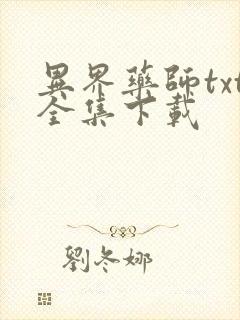 異界藥師txt
全集下載
劉冬娜